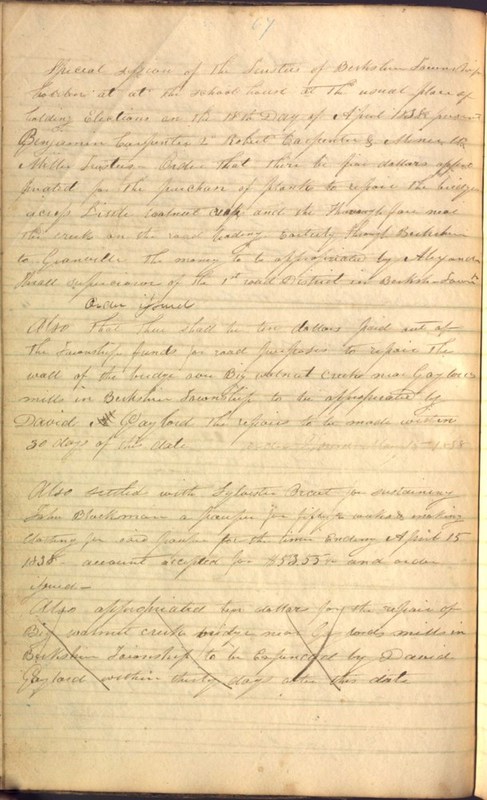 67
Special session of the Trustees of Berkshire Township
holden at at the school house at the usual place of
holding Elections on the 18th Day of April 1838 present
Benjamin Carpenter Robert Carpenter &
Miller Trustees Order that there be five dollars appro
priated for the purchase of plank to repair the bridge
across Little walnut creek and the Thoroughfare near
the creek on the road leading Easterly through Berkshire
to Granville the money to be appropriated by Alexander
Small supervisor of the 1st road District in Berkshire Town
Order issued
Also that there shall be ten dollars paid out of
the Township funds for road purposes to repair the
wall of the bridge over Big walnut creek near Gaylords
mills in Berkshire Township to be appropriated by
David Gaylord the repairs to be made within
30 days of this date 1838
Also settled with Sylvester for sustaining
John Blackman a pauper for fifty weeks & making
clothing for said pauper for the time Ending April 15
1838 account accepted for $53.55 and order
issued
Also appropriated ten dollars for the repair of
Big walnut creek bridge near Gaylords mills in
Berkshire Township to be Expended by David
Gaylord within thirty days after this date